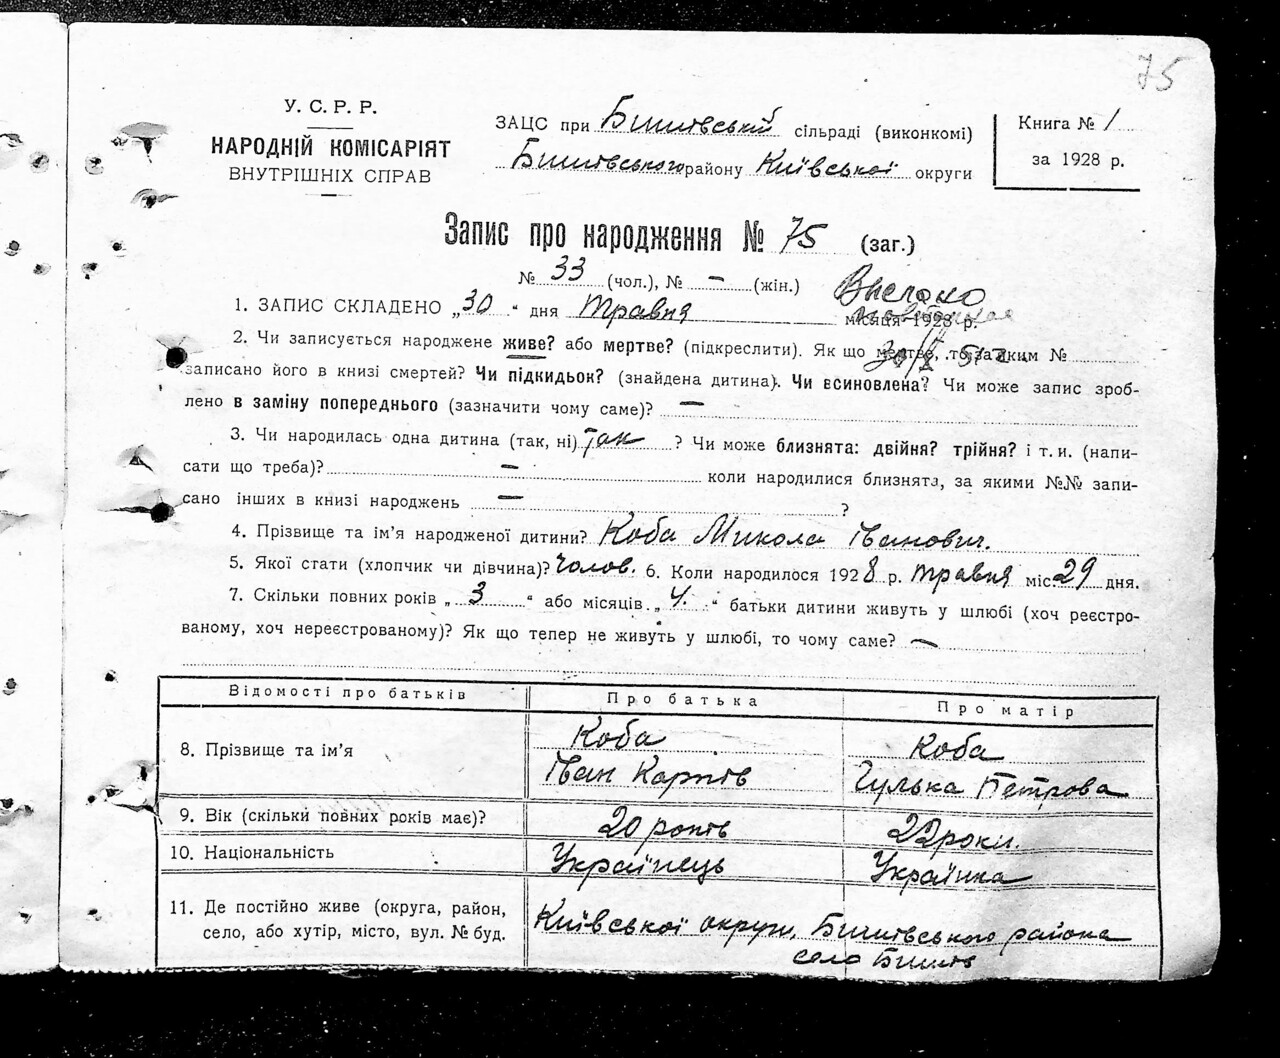 75
У. С. Р. Р.
НАРОДНІЙ КОМІСАРІЯТ
ВНУТРІШНІХ СПРАВ
ЗАЦС при Бишівській сільраді (виконкомі)
Бишівського району Київської округи
Книга № 1
за 1928 р.
Запис про народження № 75 (заг.)
№ 33 (чол.), № — (жін.)
1. ЗАПИС СКЛАДЕНО „30“ дня травня місяця 1928 р.
2. Чи записується народжене живе? або мертве? (підкреслити). Як що мертве, то за яким №
записано його в книзі смертей? Чи підкидьок? (знайдена дитина). Чи всиновлена? Чи може запис зроб-
лено в заміну попереднього (зазначити чому саме)? —
3. Чи народилась одна дитина (так, ні) так ? Чи може близнята: двійня? трійня? і т. и. (напи-
сати що треба)? — коли народилися близнята, за якими №№ запи-
сано інших в книзі народжень — ?
4. Прізвище та ім'я народженої дитини? Коба Микола Іванович.
5. Якої стати (хлопчик чи дівчина)? чолов. 6. Коли народилося 1928 р. травня міс. 29 дня.
7. Скільки повних років „3“ або місяців „4.“ батьки дитини живуть у шлюбі (хоч реєстро-
ваному, хоч нереєстрованому)? Як що тепер не живуть у шлюбі, то чому саме? —
Відомості про батьків Про батька Про матір
8. Прізвище та ім'я Коба Коба
Іван Карпів Гулька Петрова
9. Вік (скільки повних років має)? 20 років 22 роки.
10. Національність Українець Українка
11. Де постійно живе (округа, район, Київської округи, Бишівського района
село, або хутір, місто, вул. № буд. село Бишів